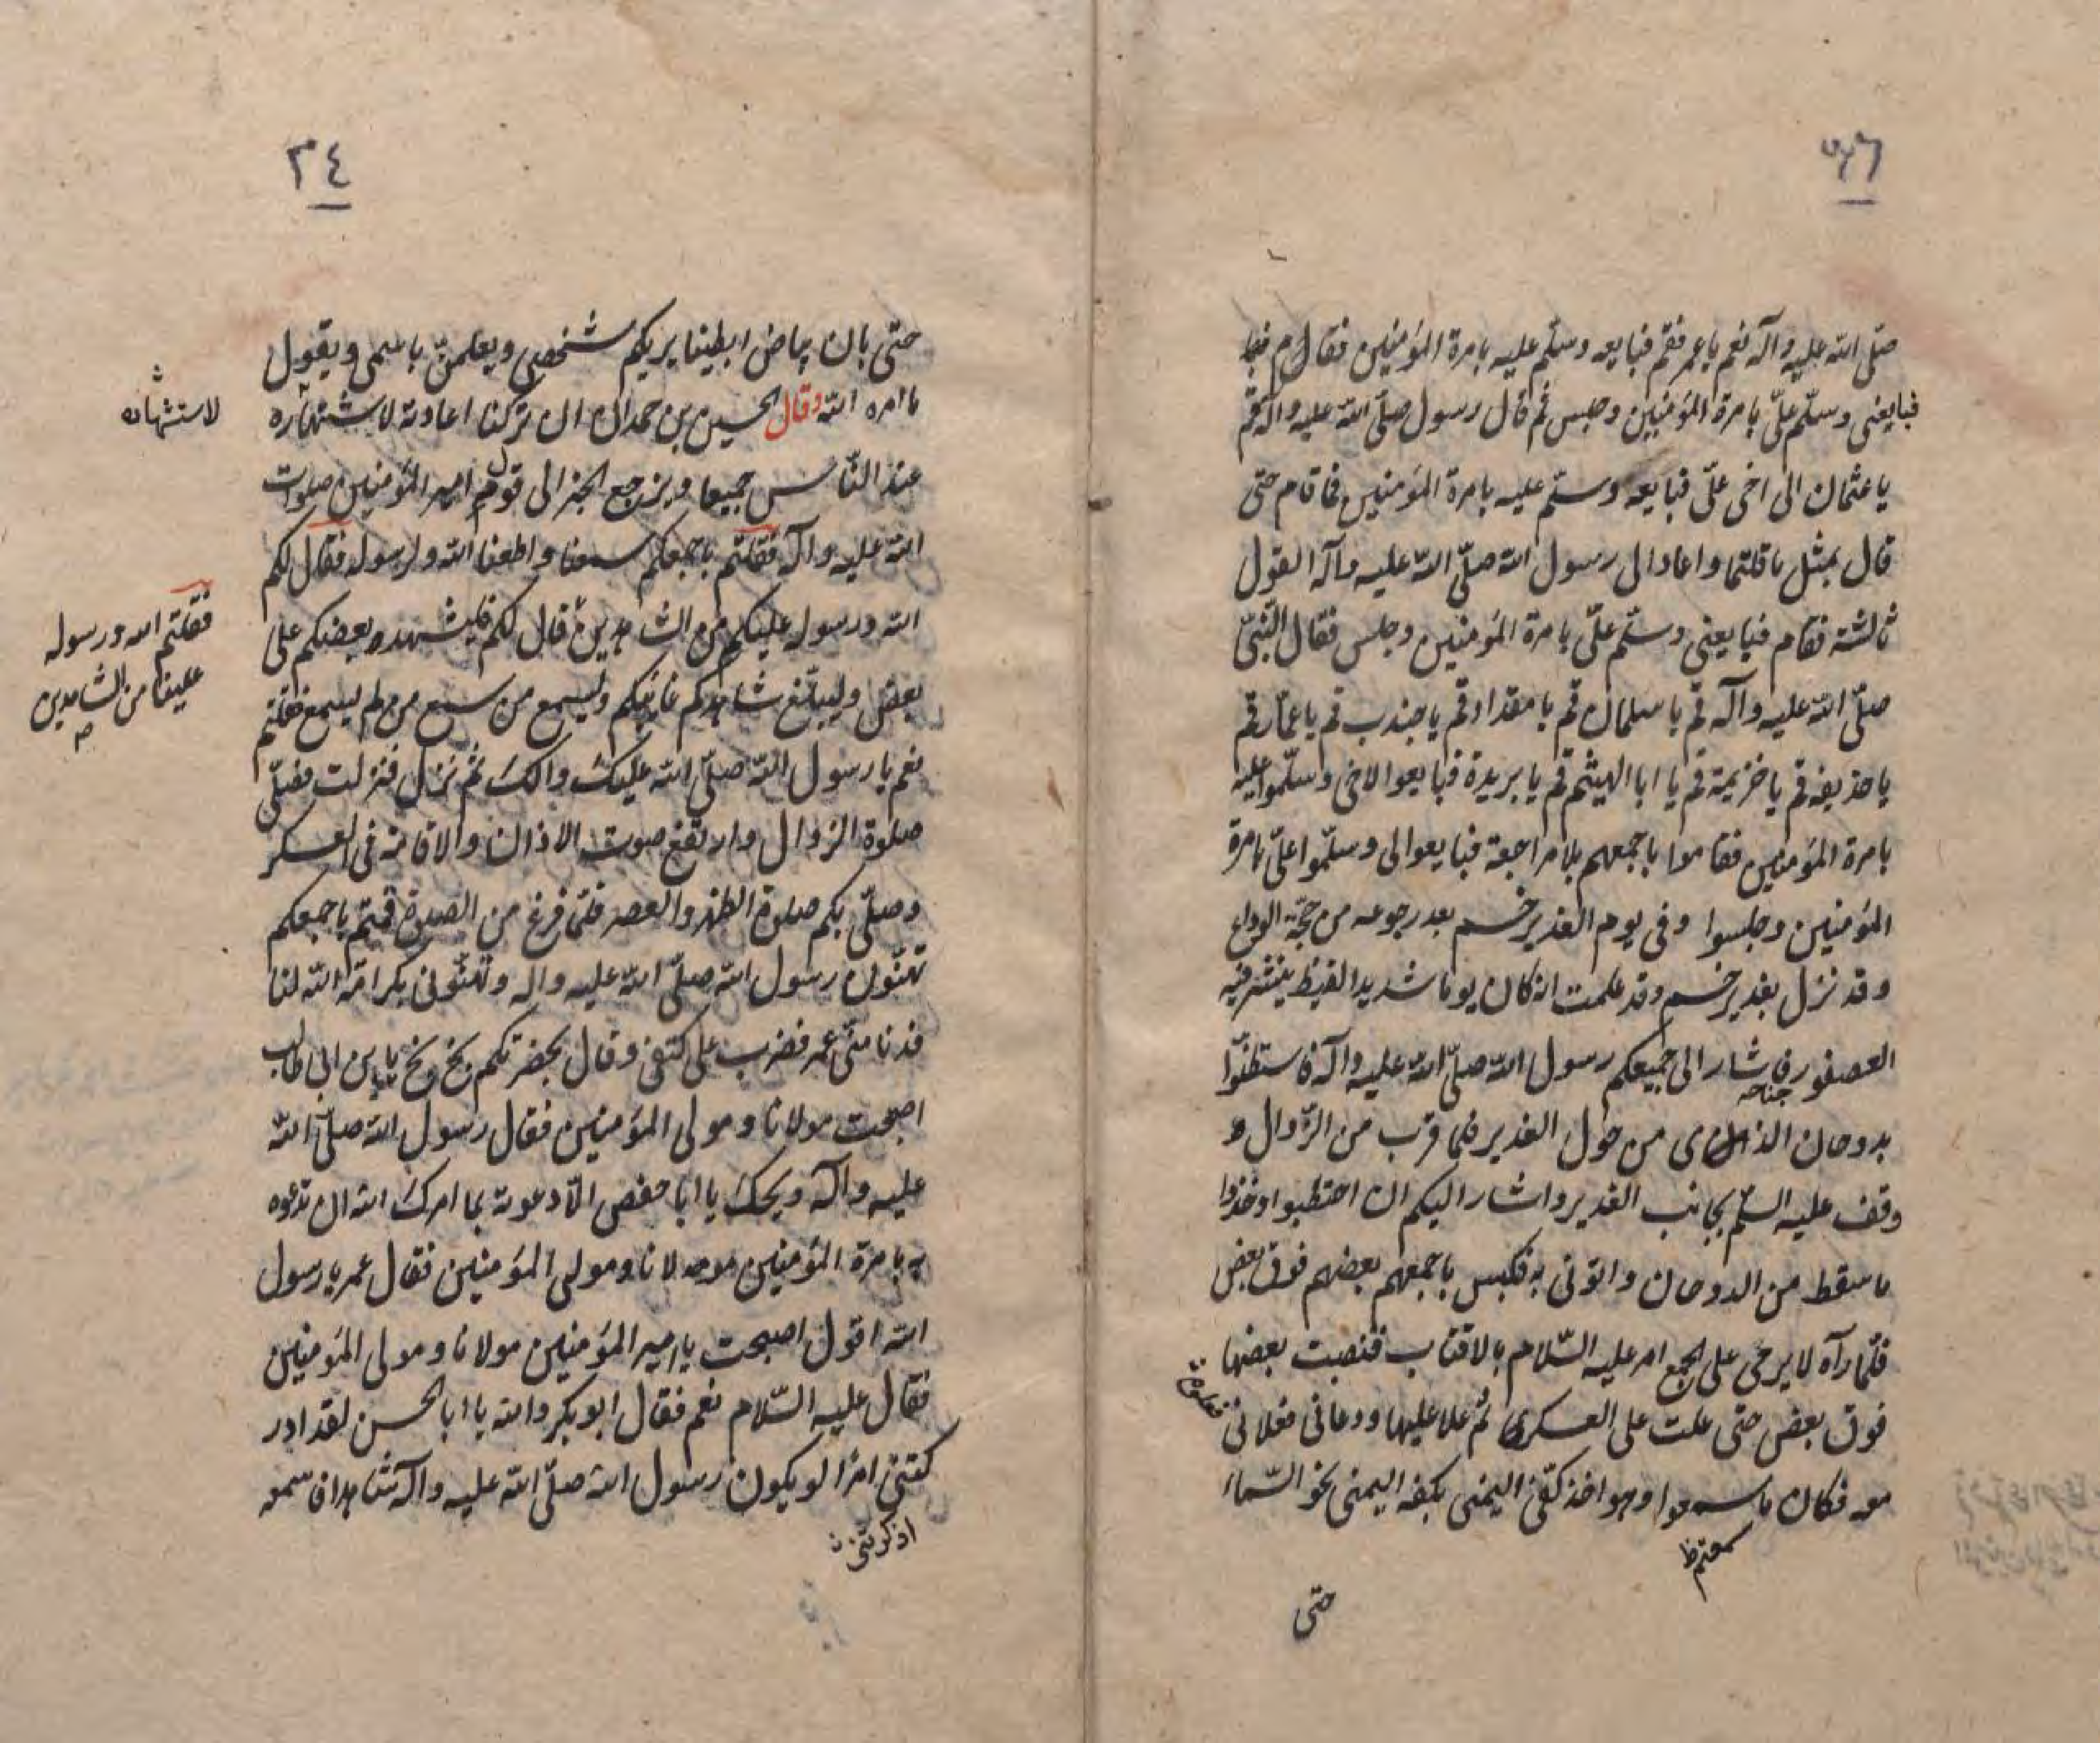 صلّى الله عليه وآله نعم ياعمر فقم فبايعه وسلّم عليه بامرة المؤمنين فقام
فبايعنى وسلّم علىّ بامرة المؤمنين وجلس ثم قال رسول صلّى الله عليه وآله قم
ياعثمان الى اخى علىّ فبايعه وسلّم عليه بامرة المؤمنين فما قام حتى
قال بمثل ما قلتما واعاد الى رسول الله صلّى الله عليه وآله القول
ثالثة فقام فبايعنى وسلّم علىّ بامرة المؤمنين وجلس فقال النبىّ
صلّى الله عليه وآله قم يا سلمان قم يا مقداد قم يا جندب قم يا عمّار قم
يا حذيفه قم يا خزيمة قم يا ابا الهيثم قم يا بريدة فبايعوا لاخى وسلّموا عليه
بامرة المؤمنين فقاموا باجمعهم بلا مراجعة فبايعوا لى وسلّموا علىّ بامرة
المؤمنين وجلسوا وفى يوم الغدير خم بعد رجوعه من حجّة الوداع
وقد نزل بغدير خم وقد علمت انه كان يوما شديد القيظ ينشر فيه
العصفور جناحه فاشار الى جميعكم رسول الله صلّى الله عليه وآله فاستظلّوا
بدوحان من حول الغدير فلما قرب من الزّوال و
وقف عليه السلّم بجانب الغدير واشار اليكم ان احتطبوا وخذوا
ما سقط من الدوحان والتونى به فكبس باجمعهم بعضهم فوق بعض
فلمّا رآه لا يرخى على الجمع امر عليه السّلام بالاقتاب فنصبت بعضها
فوق بعض حتى علت على العسكرى ثم علا عليها ودعانى فعلانى
معه فكان ما سمعوا وهو اخذ كفّى اليمنى بكفه اليمنى نحو السّماء
سمعتم ظ
حتى
٣٤
حتى بان بياض ابطينا يريكم شخصى ويعلمنّ باسمى ويقول
ما امره الله وقال الحسين بن حمدان ان تركنا اعادته لاشتهاره
لاستشهاده
عند النّاس جميعا ويرجع الخبر الى قول امير المؤمنين صلوات
الله عليه وآله فقلتم باجمعكم سمعنا واطعنا الله ولرسوله فقال لكم
الله ورسوله عليكم من الشاهدين قال لكم فليشهد بعضكم على
فقلتم الله ورسوله
علينا من الشاهدين
بعض وليبلّغ شاهدكم غائبكم وليسمع من سمع من لم يسمع فقلتم
نعم يا رسول الله صلّى الله عليك وآلك ثم نزل فنزلت فصلّى
صلوة الزوال وارتفع صوت الاذان والاقامة فى العسكر
وصلّى بكم صلوة الظهر والعصر فلمّا فرغ من الصلوة قمتم باجمعكم
تهنّون رسول الله صلّى الله عليه واله وتهنّونى بكرامة الله لنا
فدنا منّى عمر فضرب على كتفى وقال بحضرتكم بخ بخ يابن ابى طالب
اصبحت مولانا ومولى المؤمنين فقال رسول الله صلّى الله
عليه وآله ويحك يا ابا حفص الّا دعوته بما امرك الله ان تدعوه
به بامرة المؤمنين مولانا ومولى المؤمنين فقال عمر يا رسول
الله اقول اصبحت يا امير المؤمنين مولانا ومولى المؤمنين
فقال عليه السّلام نعم فقال ابو بكر والله يا ابا الحسن لقد ادر
كتنى امرًا لو يكون رسول الله صلّى الله عليه وآله شاهدا فاسمعه
اذكرتنى